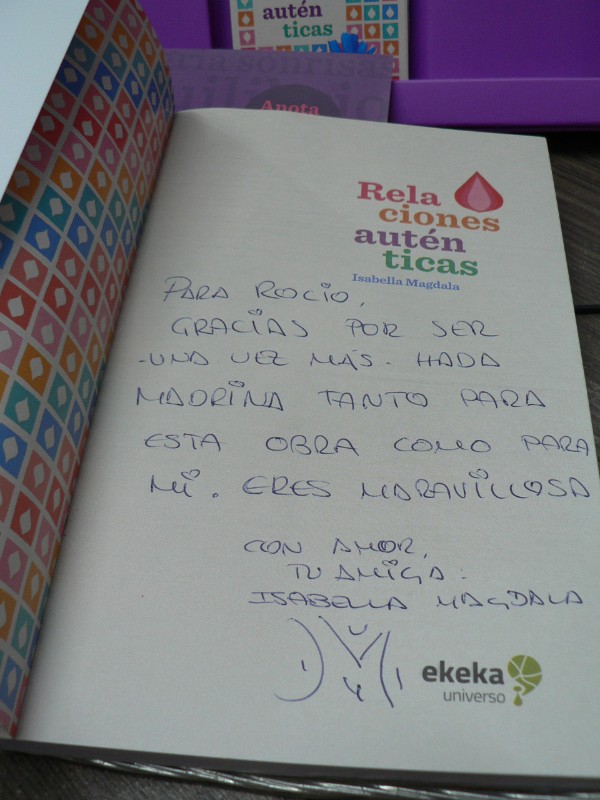 autén
ticas
ría sonrisas
Anota
Rela
ciones
autén
ticas
Isabella Magdala
PARA ROCIO,
GRACIAS POR SER
-UNA VEZ MÁS- HADA
MADRINA TANTO PARA
ESTA OBRA COMO PARA
MI. ERES MARAVILLOSA
CON AMOR,
TU AMIGA:
ISABELLA MAGDALA
ekeka
universo